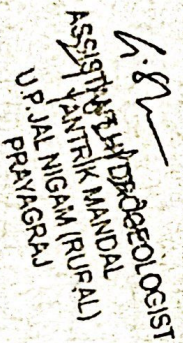 ASSISTANT HYDROGEOLOGIST
YANTRIK MANDAL
U.P JAL NIGAM (RURAL)
PRAYAGRAJ